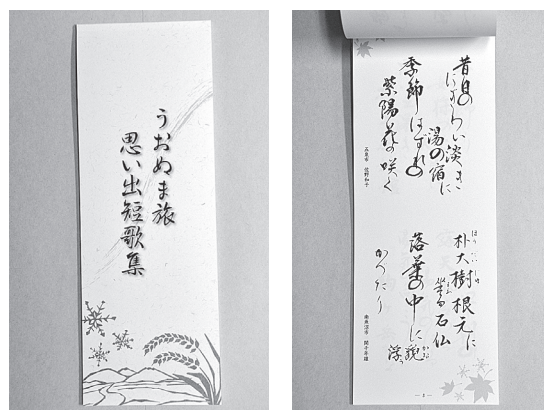 うおぬま旅
思い出短歌集
昔日の
にぎわい淡き
湯の宿に
季節はずれの
紫陽花の咲く
朴大樹根元に
坐る石仏
落葉の中に貌
南魚沼市